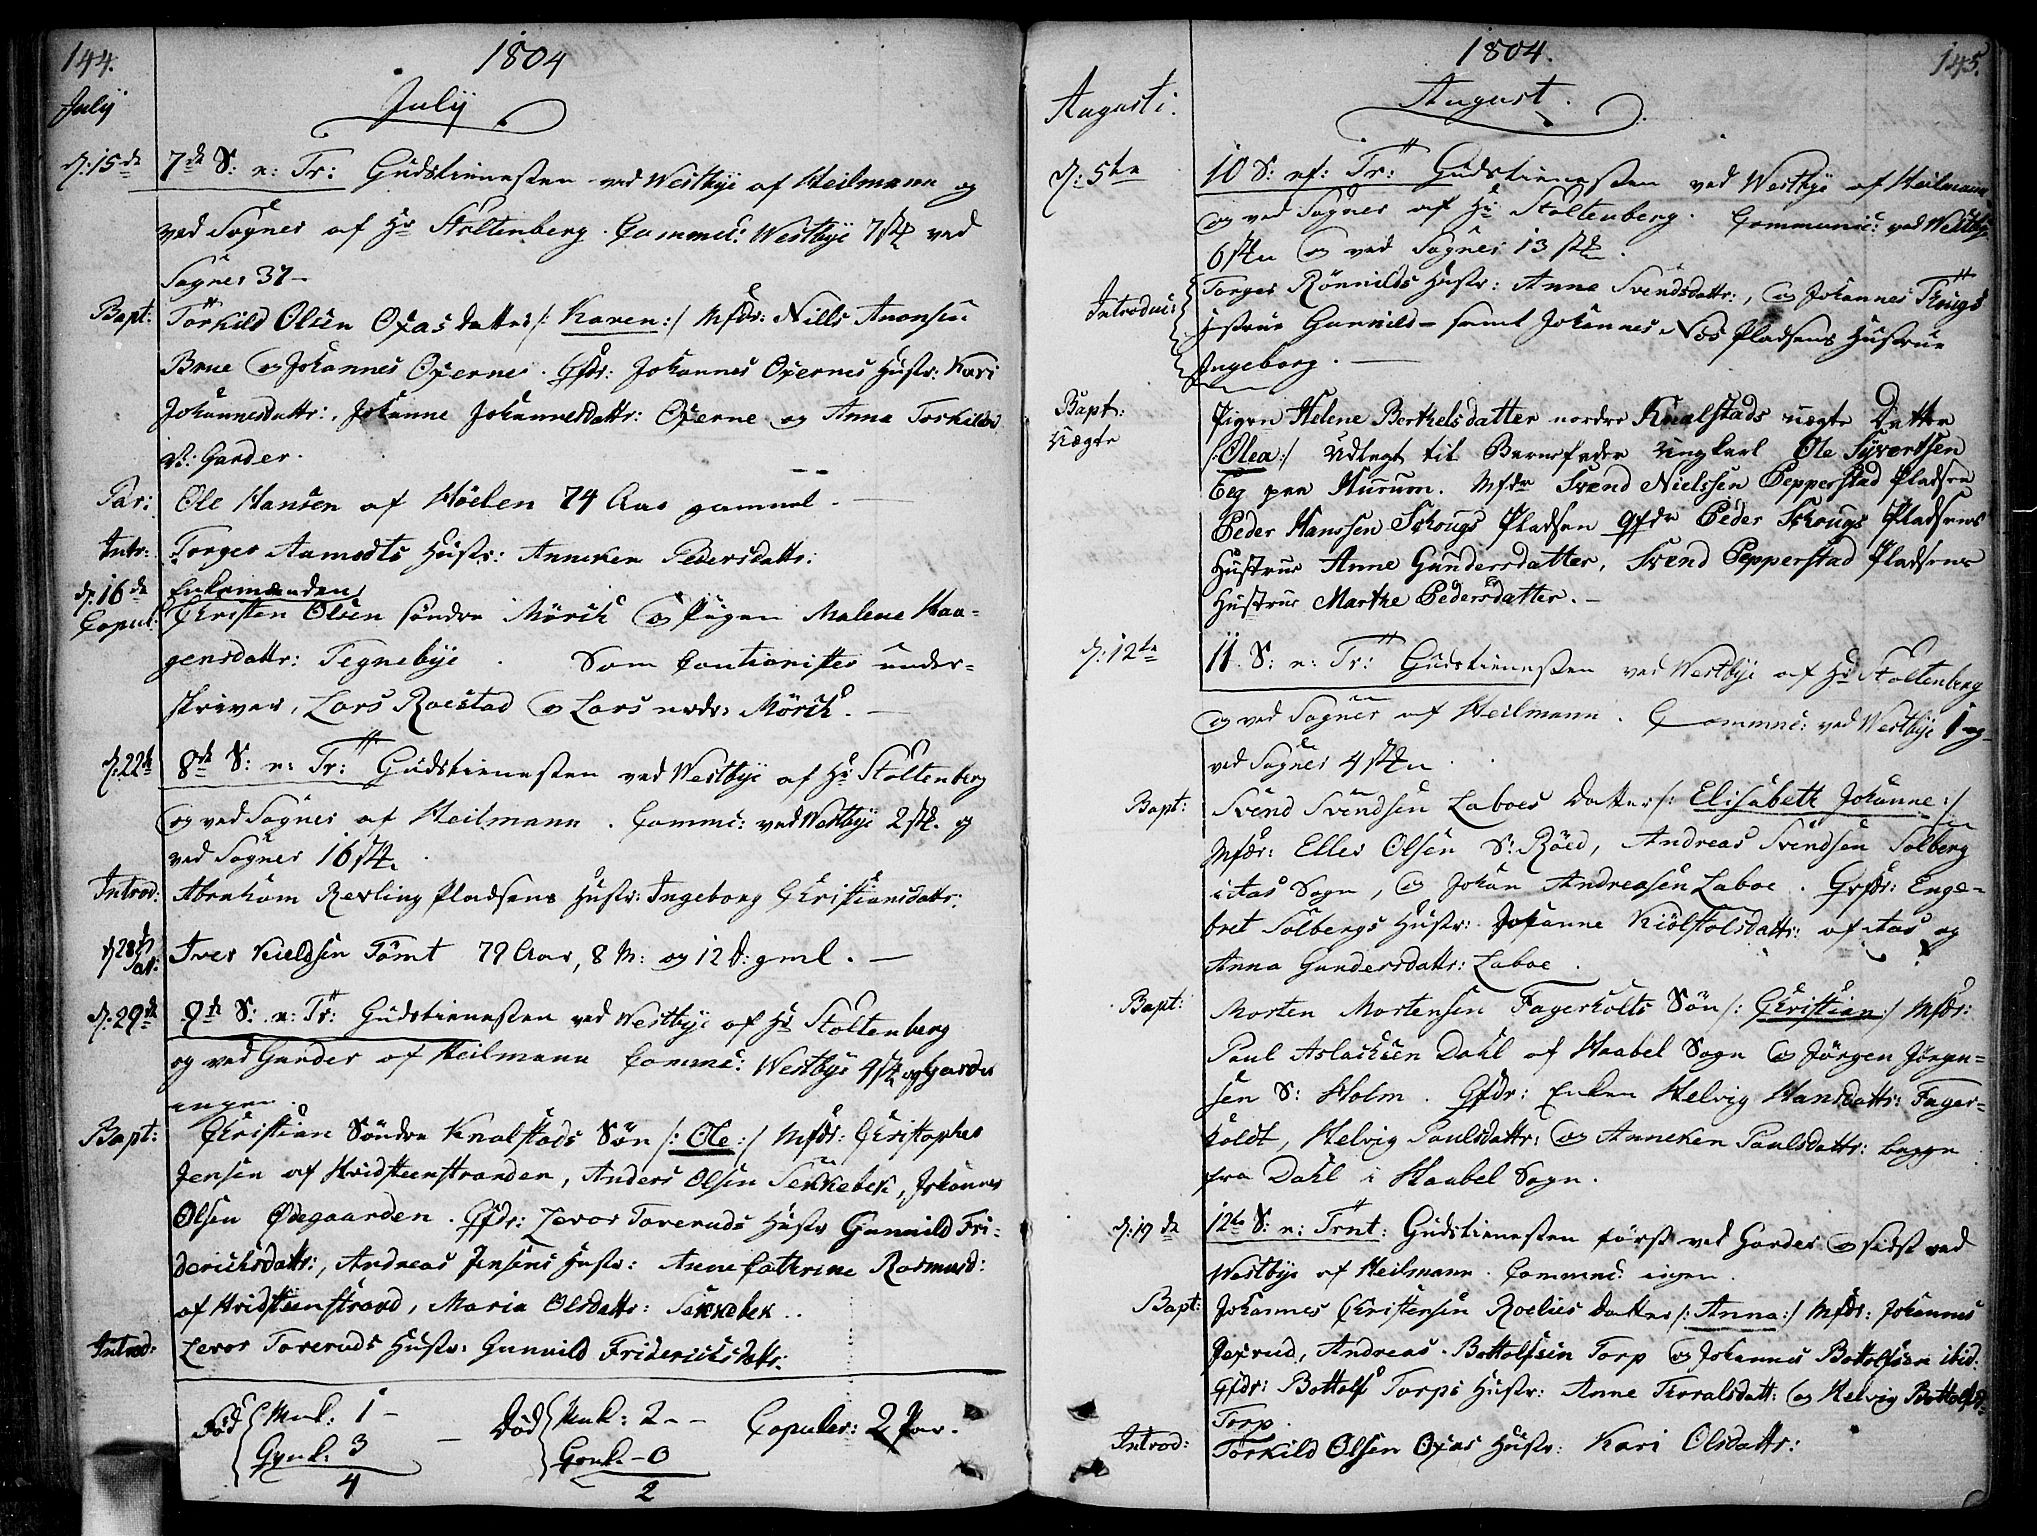 144.
1804
July
July
d: 15de 7de S: n: Tr: Gudstienesten ved Westbye af Heilmann og
ved Sogner af Hr Stoltenberg. Commc: Westbye 7 stk ved
Sogner 37 —
Bapt: Torkild Olsen Oxas datter /: Karen :/ Mfdr: Nills Anonsen
Brue og Johannes Oxernes. Qfdr: Johannes Oxernes Hustr: Kari
Johannesdattr:, Johanne Johannesdattr: Oxerne og Anne Torkilds
V: Garder.
Par: Ole Hansen af Höelen 74 Aar gammel. —
Intr: Torger Aamodts Hustr: Anneken Pedersdattr:
d: 16de Enkemanden
Copul: Christen Olsen söndre Mörch og Pigen Malene Haa-
gensdattr: Tegnebye. Som Cautionister under-
skriver, Lars Roestad og Lars nrdr: Mörch. —
d: 22de 8de S: n: Tr: Gudstienesten ved Westbye af Hr Stoltenberg
og ved Sogner af Heilmann. Commc: ved Westbye 2 stk. og
ved Sogner 16 stk.
Introd: Abraham Revling Pladsens Hustr: Ingeborg Christiansdattr:
d 28de Iver Kieldsen Tömt 79 Aar, 8 M: og 12 D: gml. —
d: 29de 9de S: n: Tr: Gudstienesten ved Westbye af Hr Stoltenberg
og ved Garder af Heilmann Commc: Westbye 9 stk og Garder
ingen.
Bapt: Christian Söndre Knalstads Sön /: Ole :/ Mfdr: Christopher
Jensen af Hvidsteenstranden, Anders Olsen Sekkebek, Johannes
Olsen Ødegaarden. Qfdr: Levor Toveruds Hustr Gunnild Fri-
derichsdattr:, Andreas Jensens Hustr: Anne Cathrine Rasmusd:
af Hvidsteenstrand, Maria Olsdattr: Sekkebek.
Introd: Levor Toveruds Hustr: Gunnild Friderichsdattr:
Fød Msk: 1 — Død Msk: 2 — Copuler: 2 Par.
Qvnk: 3 — Qvnk — 0
4 2
1804.
145.
Augusti.
August.
d: 5te 10 S: ef: Tr: Gudstienesten ved Westbye af Heilmann
og ved Sogner af Hr Stoltenberg. Communic: ved Westbye
6 stk og ved Sogner 13 stk.
Introduc: Torger Rönnilds Hustr: Anne Svendsdattr:, og Johannes Krugs
Hustrue Gunnild — samt Johannes Nøs Pladsens Hustrue
Ingeborg. —
Bapt: Pigen Helene Berthelsdatter nordre Knalstads uægte Datter
Uægte /: Olea :/ Udlagt til Barnefader Ungkarl Ole Syvertsen
Eeg paa Hurum. Mfdr Svend Nielssen Pepperstad Pladsen
Peder Hanssen Skougs Pladsen Qfdr Peder Skougs Pladsens
Hustrue Anne Gundersdatter, Svend Pepperstad Pladsens
Hustrue Marthe Pedersdatter. —
d: 12te 11. S: n: Tr: Gudstienesten ved Westbye af Hr Stoltenberg
og ved Sogner af Heilmann. Commc: ved Westbye 1 og
ved Sogner 4 stk.
Bapt: Svend Svendsen Laboes Datter /: Elisabeth Johanne :/
Mfdr: Eller Olsen S: Röed, Andreas Svendsen Solberg
i Aas Sogn, og Johan Andreasen Laboe. Qvfdr: Enge-
bret Solbergs Hustr: Johanne Kiölstolsdattr: af Aas og
Anna Gundersdattr: Laboe.
Bapt: Morten Mortensen Fagerholts Sön /: Christian :/ Mfdr:
Paul Aslachsen Dahl af Haabel Sogn og Jørgen Jørgen-
sen S: Holm. Qfdr: Enken Helvig Hansdattr: Fager-
holdt, Helvig Paulsdattr: og Anneken Paulsdattr: begge
fra Dahl i Haabel Sogn.
d: 19de 12te S: n: Trnt: Gudstienesten först ved Garder og sidst ved
Westbye af Heilmann. Commc: ingen.
Bapt: Johannes Christensen Roelies Datter /: Anna :/ Mfdr: Johannes
Jexrud, Andreas Bottolfsen Torp og Johannes Bottolfsen ibid.
Qfdr: Bottolf Torps Hustr: Anne Thoralsdatt: og Helvig Bottolfsd:
Torp.
Introd: Torkild Olsen Oxas Hustr: Kari Olsdattr: